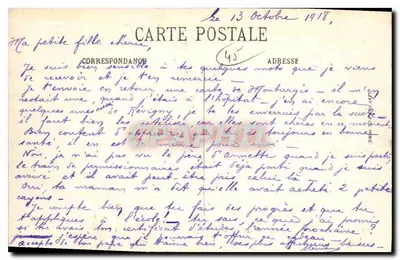 Le 13 Octobre 1918,
CARTE POSTALE
Ma petite fille chérie,
CORRESPONDANCE
45
ADRESSE
Je suis bien sensible à tes quelques mots que je viens
de recevoir et je t'en remercie.
Je t'envoie en retour, une carte de Montargis - il m'en
restait une, quand j'étais à l'hôpital - j'en ai encore
quelques unes de je te les enverrai par la suite
il faut bien les utiliser car elles sont chères en ce moment
Bien content d'apprendre que tu es toujours en bonne
santé, il en est de même pour moi -
Non, je n'ai pas vu le père d'Annette quand je suis parti,
le train de permissionnaires était déjà parti quand je suis
arrivé et il avait peut être pris celui là
Oui, ta maman m'a dit qu'elle avait acheté 2 petits
Je compte bien que tu fais des progrès et que tu
t'appliques à l'école! tu sais ce que j'ai promis
si tu avais ton certificat d'études, l'année prochaine?
j'espère que je pourrai t'offrir ce cadeau
accepte de ton papa qui t'aime bien, ses plus affectueux baisers -